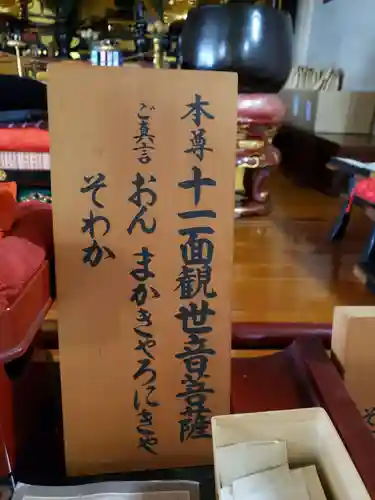 本尊 十一面観世音菩薩
ご真言 おん まかきゃろにきゃ
そわか